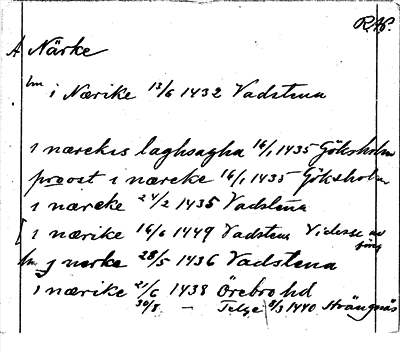 RAP.
A Närke
hm i Nærike 13/6 1432 Vadstena
i nærekes laghsagha 16/1 1435 Göksholm
proost i næreke 16/1 1435 Göksholm
i næreke 24/2 1435 Vadstena
[ i nærike 16/6 1449 Vadstena
hm j nerke 28/5 1436 Vadstena
i nærike 21/6 1438 Örebro hd
30/8 — Telge 8/3 1440 Strängnäs